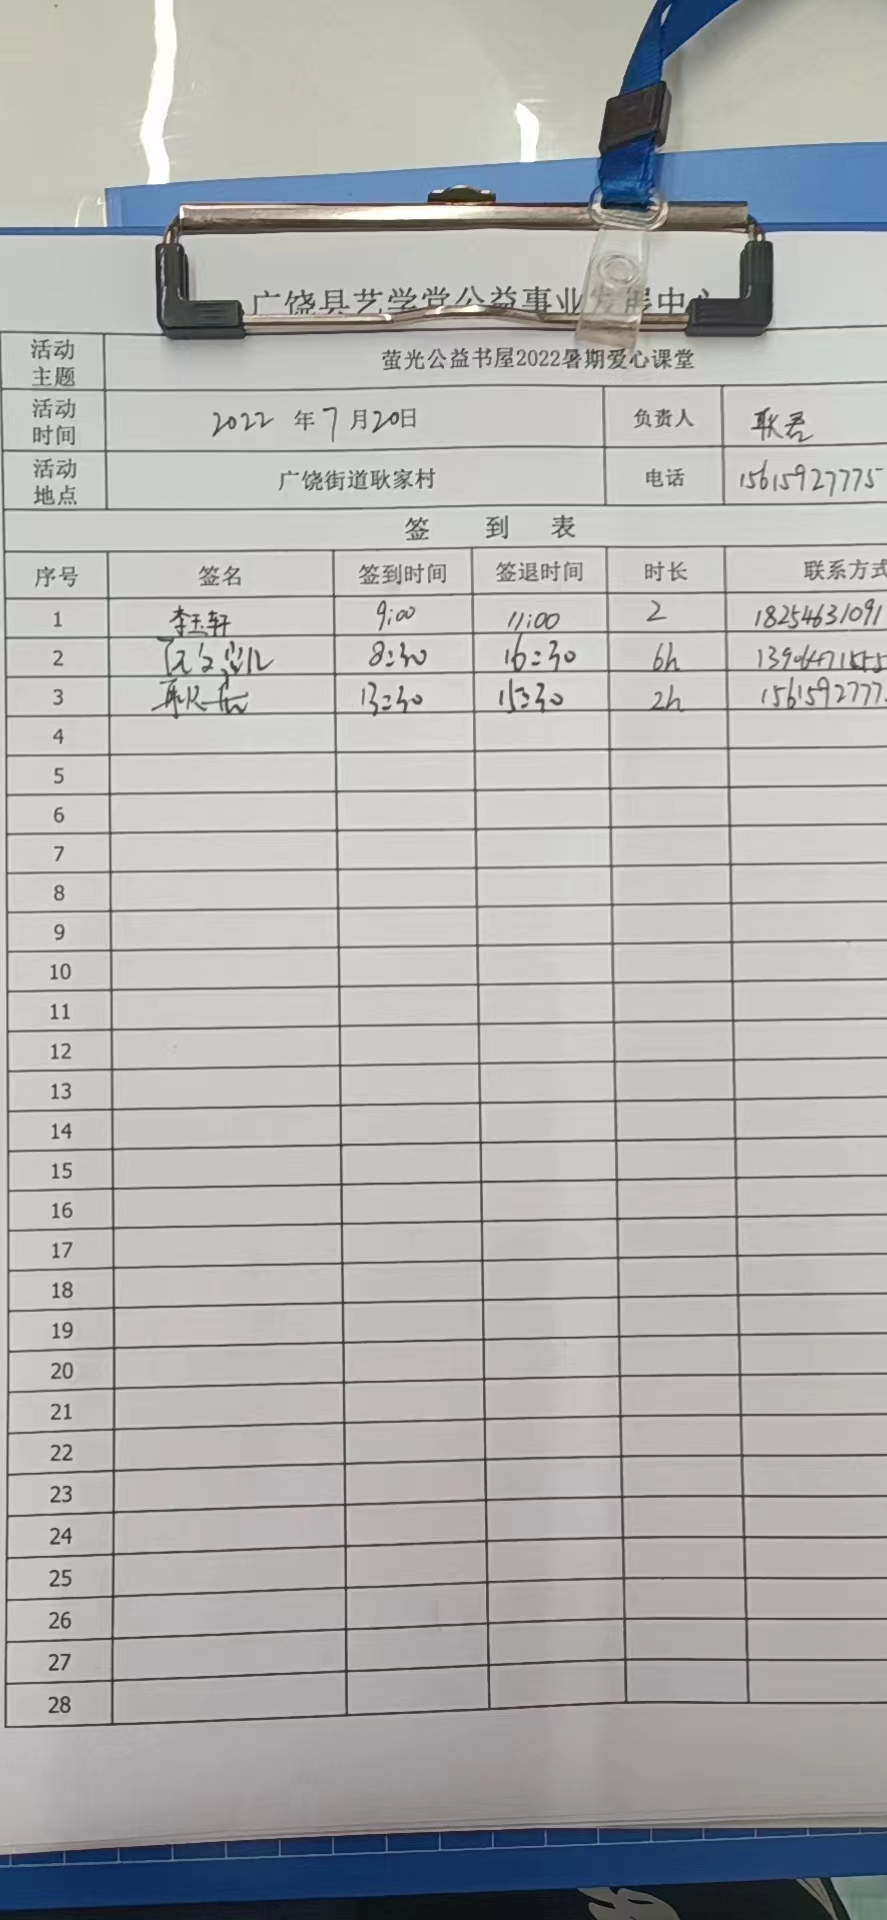 广饶县艺学堂公益事业发展中心
活动主题 萤光公益书屋2022暑期爱心课堂
活动时间 2022 年 7 月 20 日 负责人 耿君
活动地点 广饶街道耿家村 电话 15615927775
签 到 表
序号 签名 签到时间 签退时间 时长 联系方式
1 李玉轩 9:00 11:00 2 18254631091
2 8:30 16:30 6h
3 13:30 15:30 2h 1561592777
4
5
6
7
8
9
10
11
12
13
14
15
16
17
18
19
20
21
22
23
24
25
26
27
28